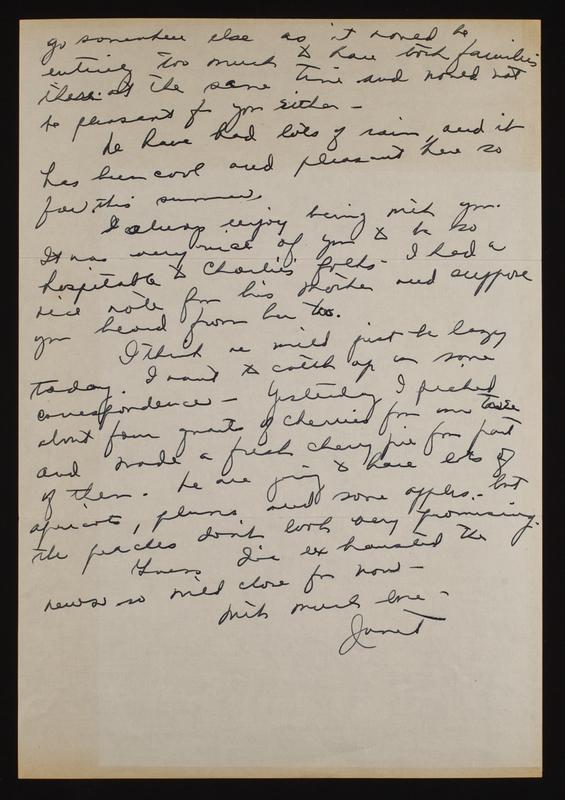 go somewhere else as it would be
entirely too much to have both families
there at the same time and would not
be pleasant for you either -
We have had lots of rain, and it
has been cool and pleasant here so
far this summer.
I always enjoy being with you.
It was very nice of you to be so
hospitable to Charlie's folks - I had a
nice note from his mother and suppose
you heard from her too.
I think we will just be lazy
today. I want to catch up on some
correspondence - Yesterday I picked
about four quarts of cherries from our tree
and made a fresh cherry pie from part
of them. We are going to have lots of
apricots, plums and some apples - but
the peaches don't look very promising.
Guess I've exhausted the
news so will close for now -
With much love -
Janet